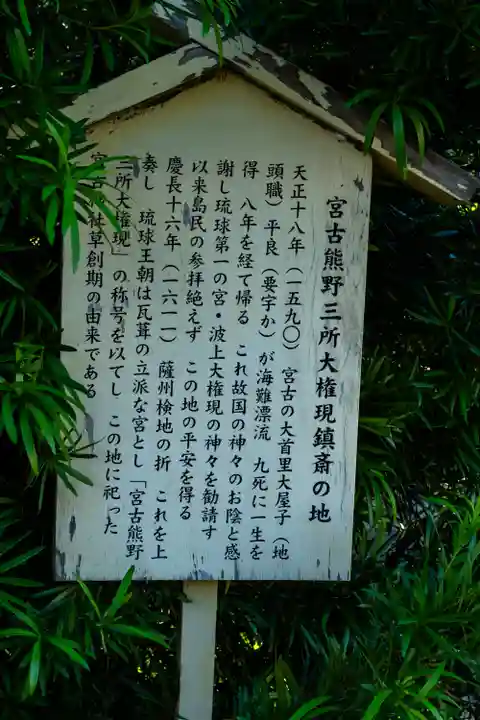 宮古熊野三所大権現鎮斎の地
天正十八年（一五九〇） 宮古の大首里大屋子（地
頭職）平良（要字か）が海難漂流 九死に一生を
得 八年を経て帰る これ故国の神々のお陰と感
謝し琉球第一の宮・波上大権現の神々を勧請す
以来島民の参拝絶えず この地の平安を得る
慶長十六年（一六一一） 薩州検地の折 これを上
奏し 琉球王朝は瓦葺の立派な宮とし「宮古熊野
三所大権現」の称号を以てし この地に祀った
宮古神社草創期の由来である